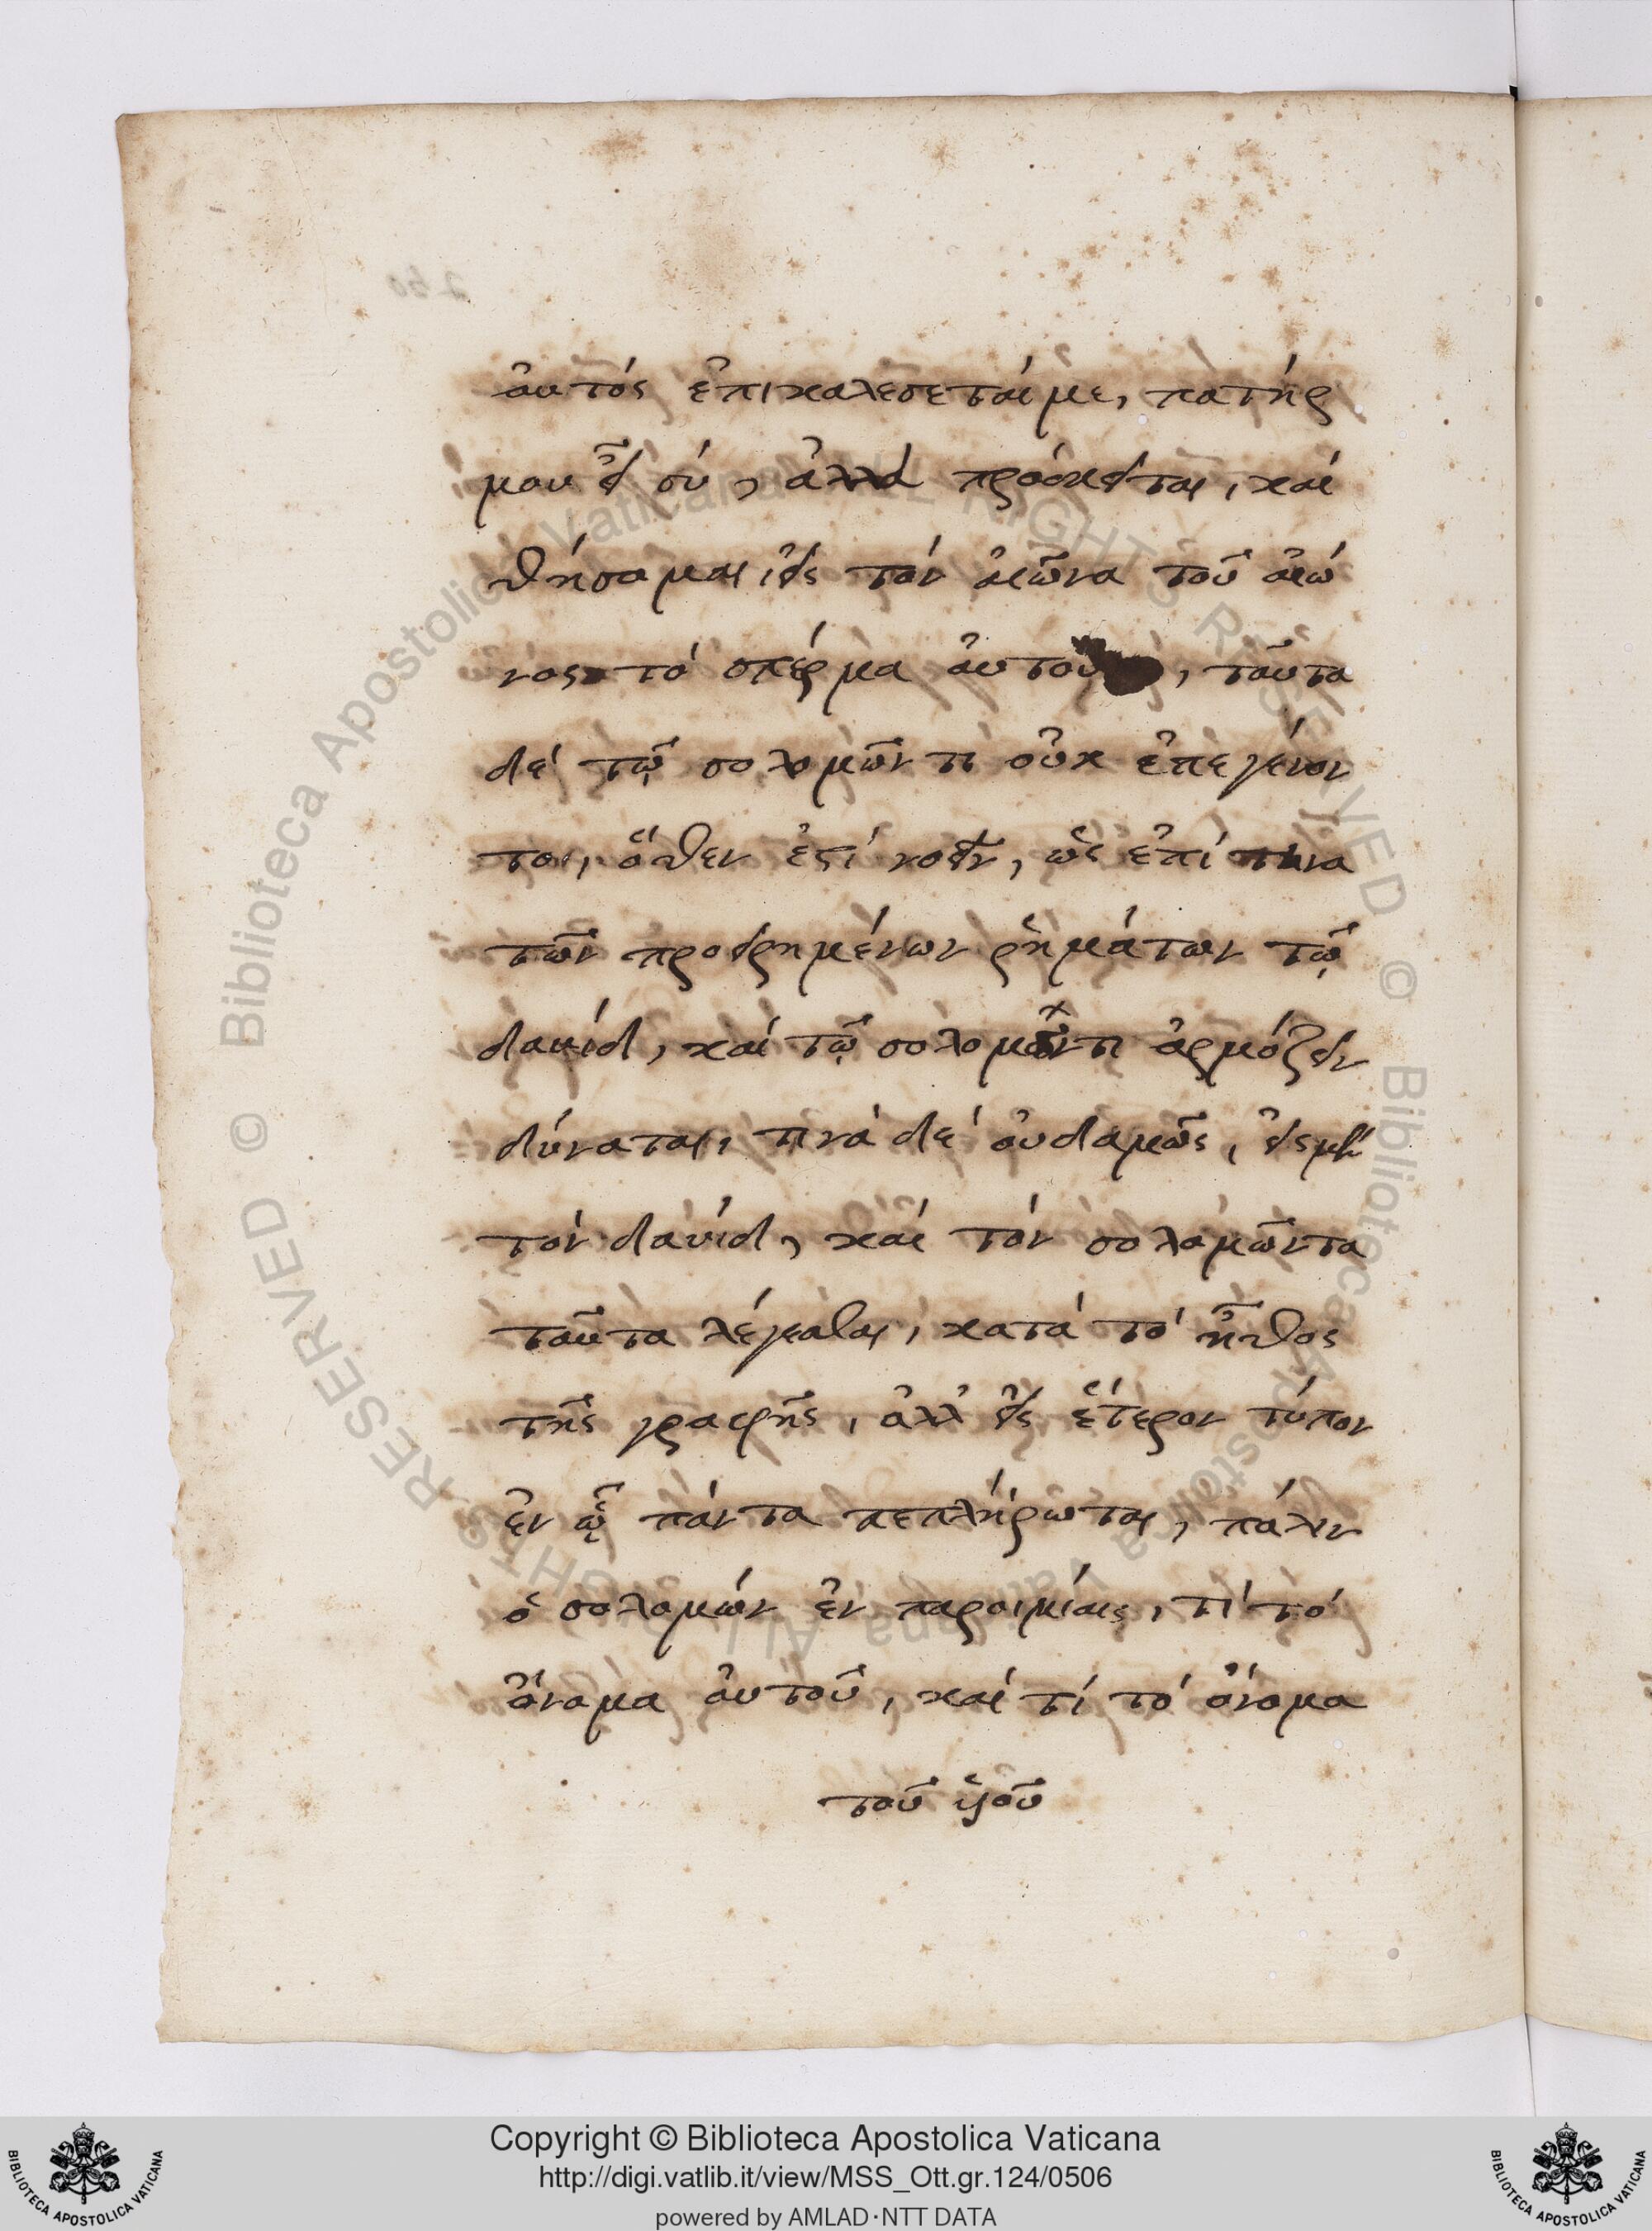 αὐτός ἐπικαλεσεταί με, πατήρ
μου εἶ σύ, ἀλλά πρόσκειται, καί
θήσομαι εἰς τόν αἰῶνα τοῦ αἰώ
νος τό σπέρμα αὐτοῦ, ταῦτα
δέ τῷ σολομῶντι οὐκ ἐπεγένον
το, ὅθεν ἐστί νοεῖν, ὡς ἐπί τινα
τῶν προειρημένων ῥημάτων τῷ
δαυίδ, καί τῷ σολομῶντι ἁρμόζειν
δύναται, τινά δέ οὐδαμῶς, εἰς μὴ
τόν δαυίδ, καί τόν σολομῶντα
ταῦτα λέγεσθαι, κατά τό ἦθος
τῆς γραφῆς, ἀλλ' εἰς ἕτερον τύπον
ἐν ᾧ πάντα πεπλήρωται, πάλιν
ὁ σολομών ἐν παροιμίαις, τί τό
ὄνομα αὐτοῦ, καί τί τό ὄνομα
τοῦ ὑιοῦ
© Biblioteca Apostolica Vaticana ALL RIGHTS RESERVED © Biblioteca Apostolica Vaticana ALL RIGHTS RESERVED
Copyright © Biblioteca Apostolica Vaticana
http://digi.vatlib.it/view/MSS_Ott.gr.124/0506
powered by AMLAD·NTT DATA
BIBLIOTECA APOSTOLICA VATICANA
BIBLIOTECA APOSTOLICA VATICANA